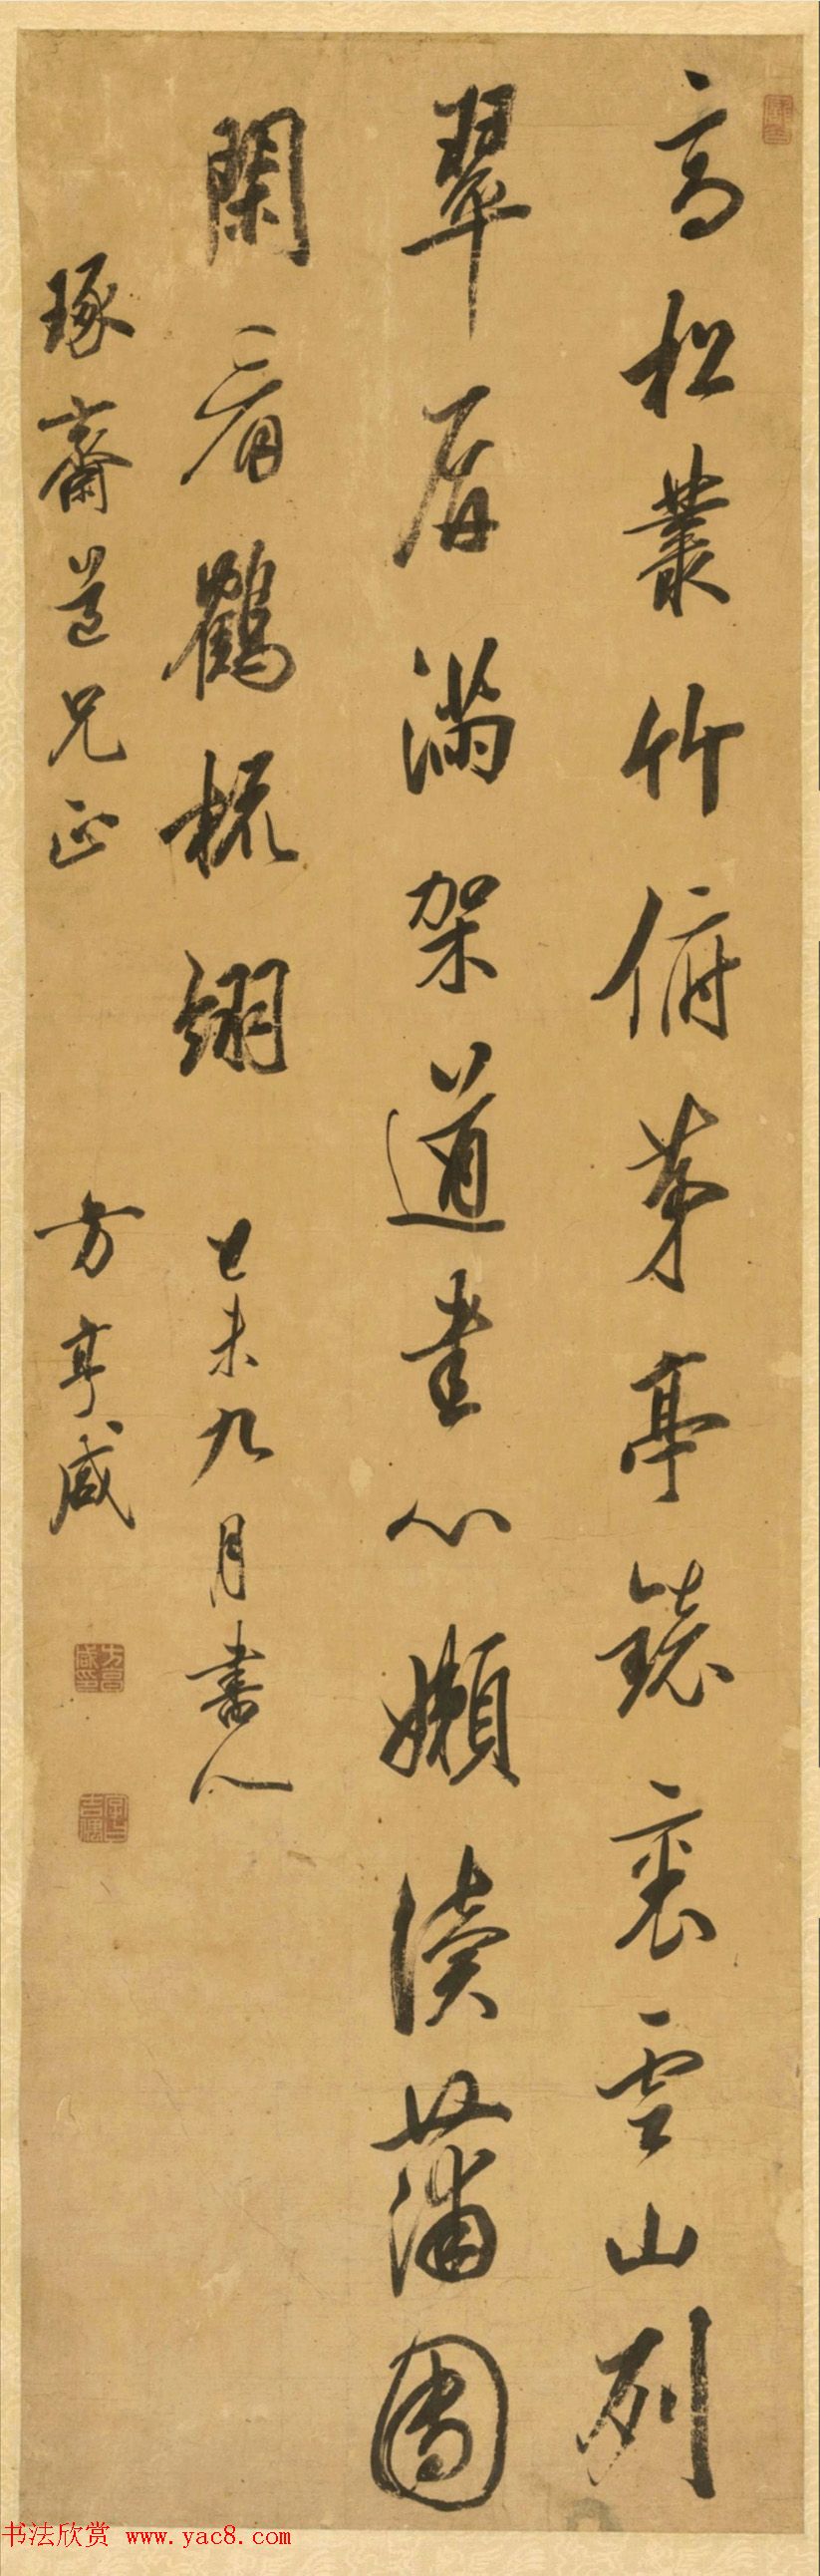 高松叢竹俯茅亭鏡裏雲山列
翠屏滿架道書心嬾讀蒲團
閑看鶴梳翎 己未九月書似
琢齋道兄正 方亨咸
方亨咸印
书法欣赏 www.yac8.com